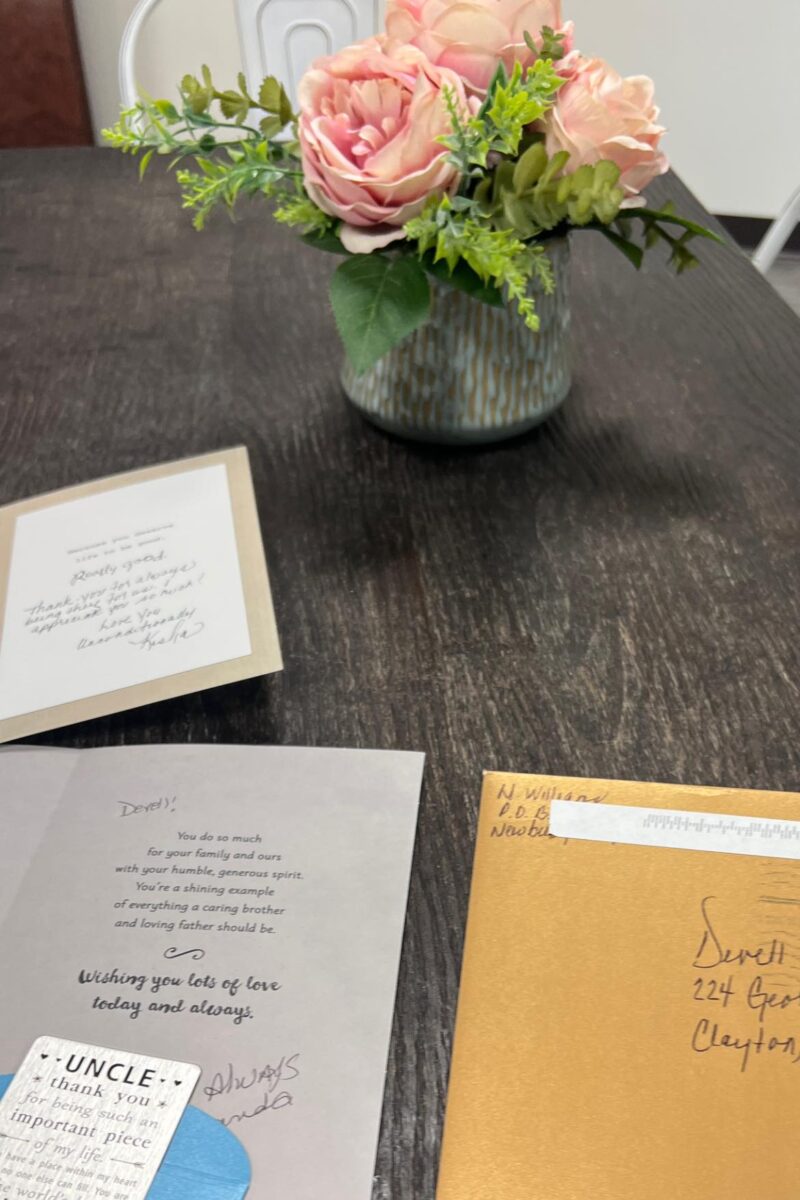 because you deserve
life to be good.
Really good
Thank you for always
being there for us. I
appreciate you so much!
Love You
Unconditionally
Kesha
Derell!
You do so much
for your family and ours
with your humble, generous spirit.
You're a shining example
of everything a caring brother
and loving father should be.
Wishing you lots of love
today and always.
Always
UNCLE
thank you
for being such an
important piece
of my life.
have a place within my heart
no one else can fill. You are
he world's
N. Williams
P.O. B
Newbu
Derell
224 Geo
Clayton,